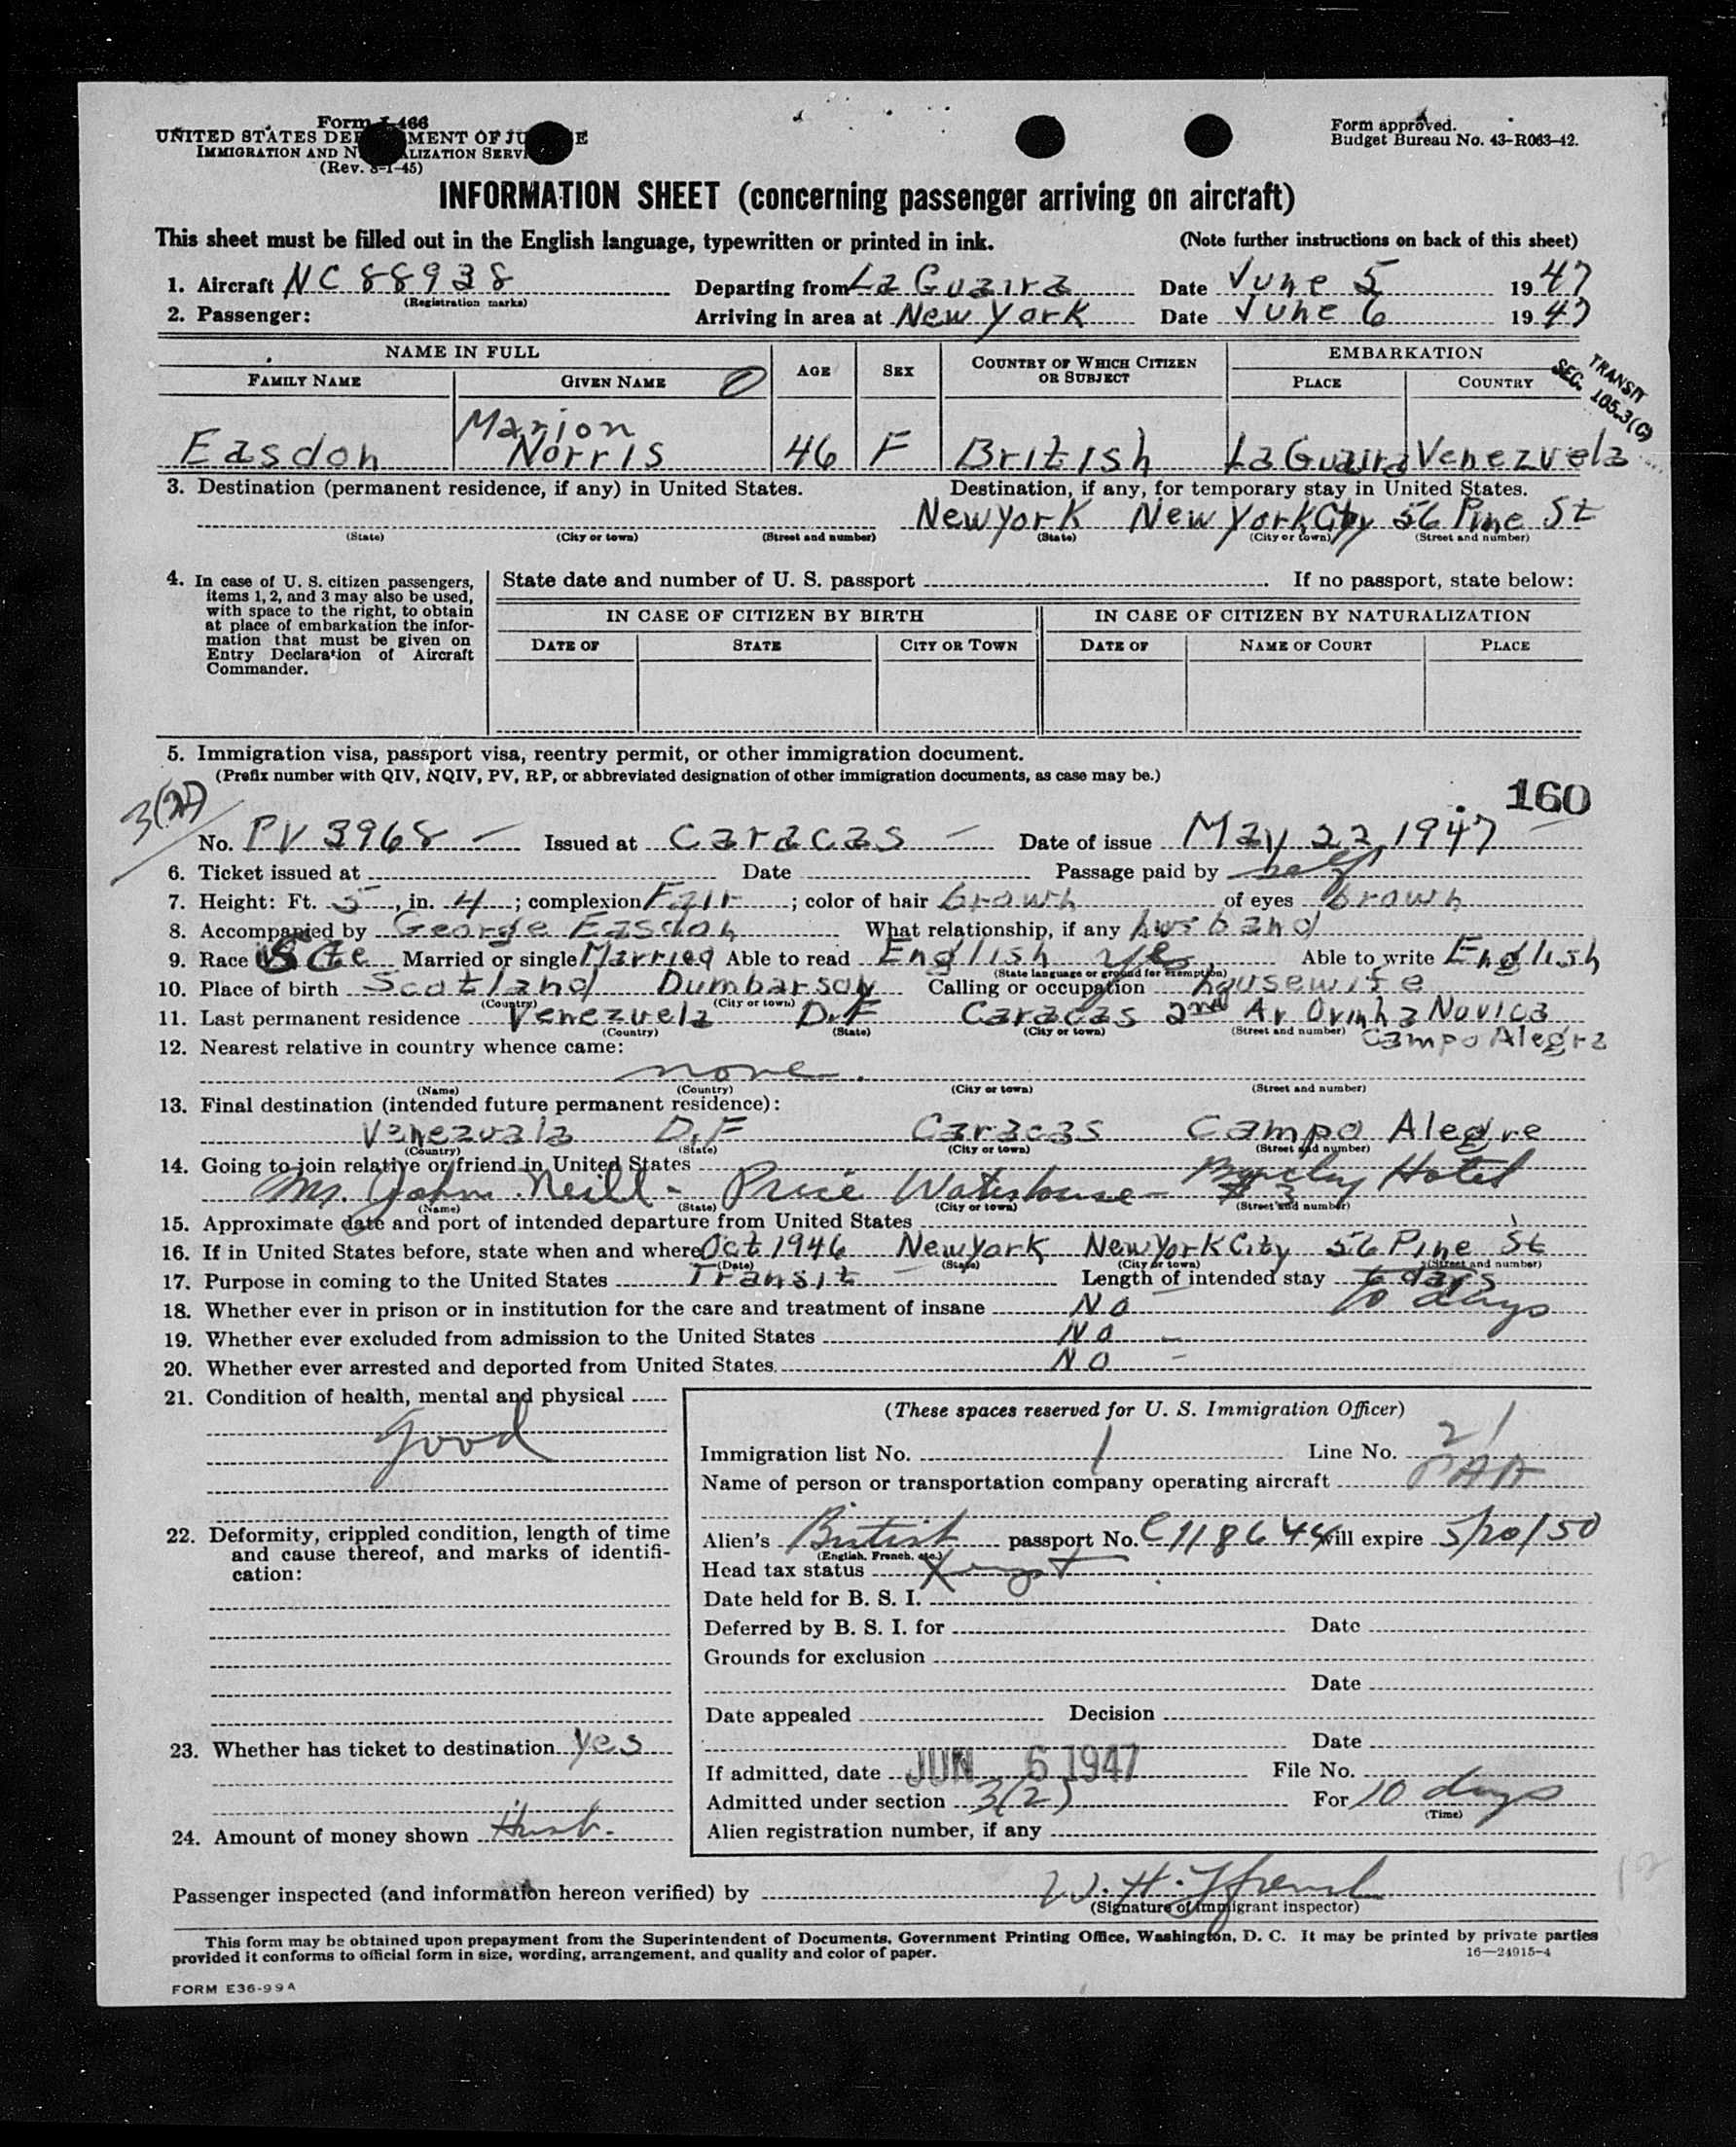 Form I-466
UNITED STATES DEPARTMENT OF JUSTICE
IMMIGRATION AND NATURALIZATION SERVICE
(Rev. 8-1-45)
Form approved.
Budget Bureau No. 43-R063-42.
INFORMATION SHEET (concerning passenger arriving on aircraft)
This sheet must be filled out in the English language, typewritten or printed in ink. (Note further instructions on back of this sheet)
1. Aircraft NC 88938 Departing from La Guaira Date June 5 1947
(Registration marks)
2. Passenger: Arriving in area at New York Date June 6 1947
NAME IN FULL AGE SEX COUNTRY OF WHICH CITIZEN OR SUBJECT EMBARKATION
FAMILY NAME GIVEN NAME PLACE COUNTRY
TRANSIT
SEC. 105.3(C)
Marion
Easdon Norris 46 F British La Guaira Venezuela
3. Destination (permanent residence, if any) in United States. Destination, if any, for temporary stay in United States.
New York New York City 56 Pine St
(State) (City or town) (Street and number) (State) (City or town) (Street and number)
4. In case of U. S. citizen passengers, items 1, 2, and 3 may also be used, with space to the right, to obtain at place of embarkation the information that must be given on Entry Declaration of Aircraft Commander.
State date and number of U. S. passport If no passport, state below:
IN CASE OF CITIZEN BY BIRTH IN CASE OF CITIZEN BY NATURALIZATION
DATE OF STATE CITY OR TOWN DATE OF NAME OF COURT PLACE
5. Immigration visa, passport visa, reentry permit, or other immigration document.
(Prefix number with QIV, NQIV, PV, RP, or abbreviated designation of other immigration documents, as case may be.)
160
3(2)
No. PV 3968 - Issued at Caracas - Date of issue May 22, 1947 -
6. Ticket issued at Date Passage paid by self
7. Height: Ft. 5, in. 4; complexion Fair; color of hair brown of eyes brown
8. Accompanied by George Easdon What relationship, if any husband
9. Race Married or single Married Able to read English yes Able to write English
(State language or ground for exemption)
10. Place of birth Scotland Calling or occupation housewife
(Country) (City or town)
11. Last permanent residence Venezuela D.F Caracas 2nd Av
(Country) (State) (City or town) (Street and number)
Campo Alegra
12. Nearest relative in country whence came:
none.
(Name) (Country) (City or town) (Street and number)
13. Final destination (intended future permanent residence):
Venezuala D.F Caracas Campo Alegre
(Country) (State) (City or town) (Street and number)
14. Going to join relative or friend in United States
John Neill - Price Waterhouse - Hotel
(Name) (State) (City or town) (Street and number)
15. Approximate date and port of intended departure from United States
16. If in United States before, state when and where Oct 1946 New York New York City 56 Pine St
(Date) (State) (City or town) (Street and number)
17. Purpose in coming to the United States Transit - Length of intended stay 6 days
10 days
18. Whether ever in prison or in institution for the care and treatment of insane No
19. Whether ever excluded from admission to the United States No -
20. Whether ever arrested and deported from United States No -
21. Condition of health, mental and physical
good
22. Deformity, crippled condition, length of time and cause thereof, and marks of identification:
23. Whether has ticket to destination Yes
24. Amount of money shown Husb.
(These spaces reserved for U. S. Immigration Officer)
Immigration list No. 1 Line No. 21
Name of person or transportation company operating aircraft PAA
Alien's British passport No. C118644 will expire 5/20/50
(English, French, etc.)
Head tax status
Date held for B. S. I.
Deferred by B. S. I. for Date
Grounds for exclusion
Date
Date appealed Decision
Date
If admitted, date JUN 6 1947 File No.
Admitted under section 3(2) For 10 days
(Time)
Alien registration number, if any
Passenger inspected (and information hereon verified) by W. H.
(Signature of immigrant inspector)
This form may be obtained upon prepayment from the Superintendent of Documents, Government Printing Office, Washington, D. C. It may be printed by private parties
provided it conforms to official form in size, wording, arrangement, and quality and color of paper. 16—24915-4
FORM E36-99A